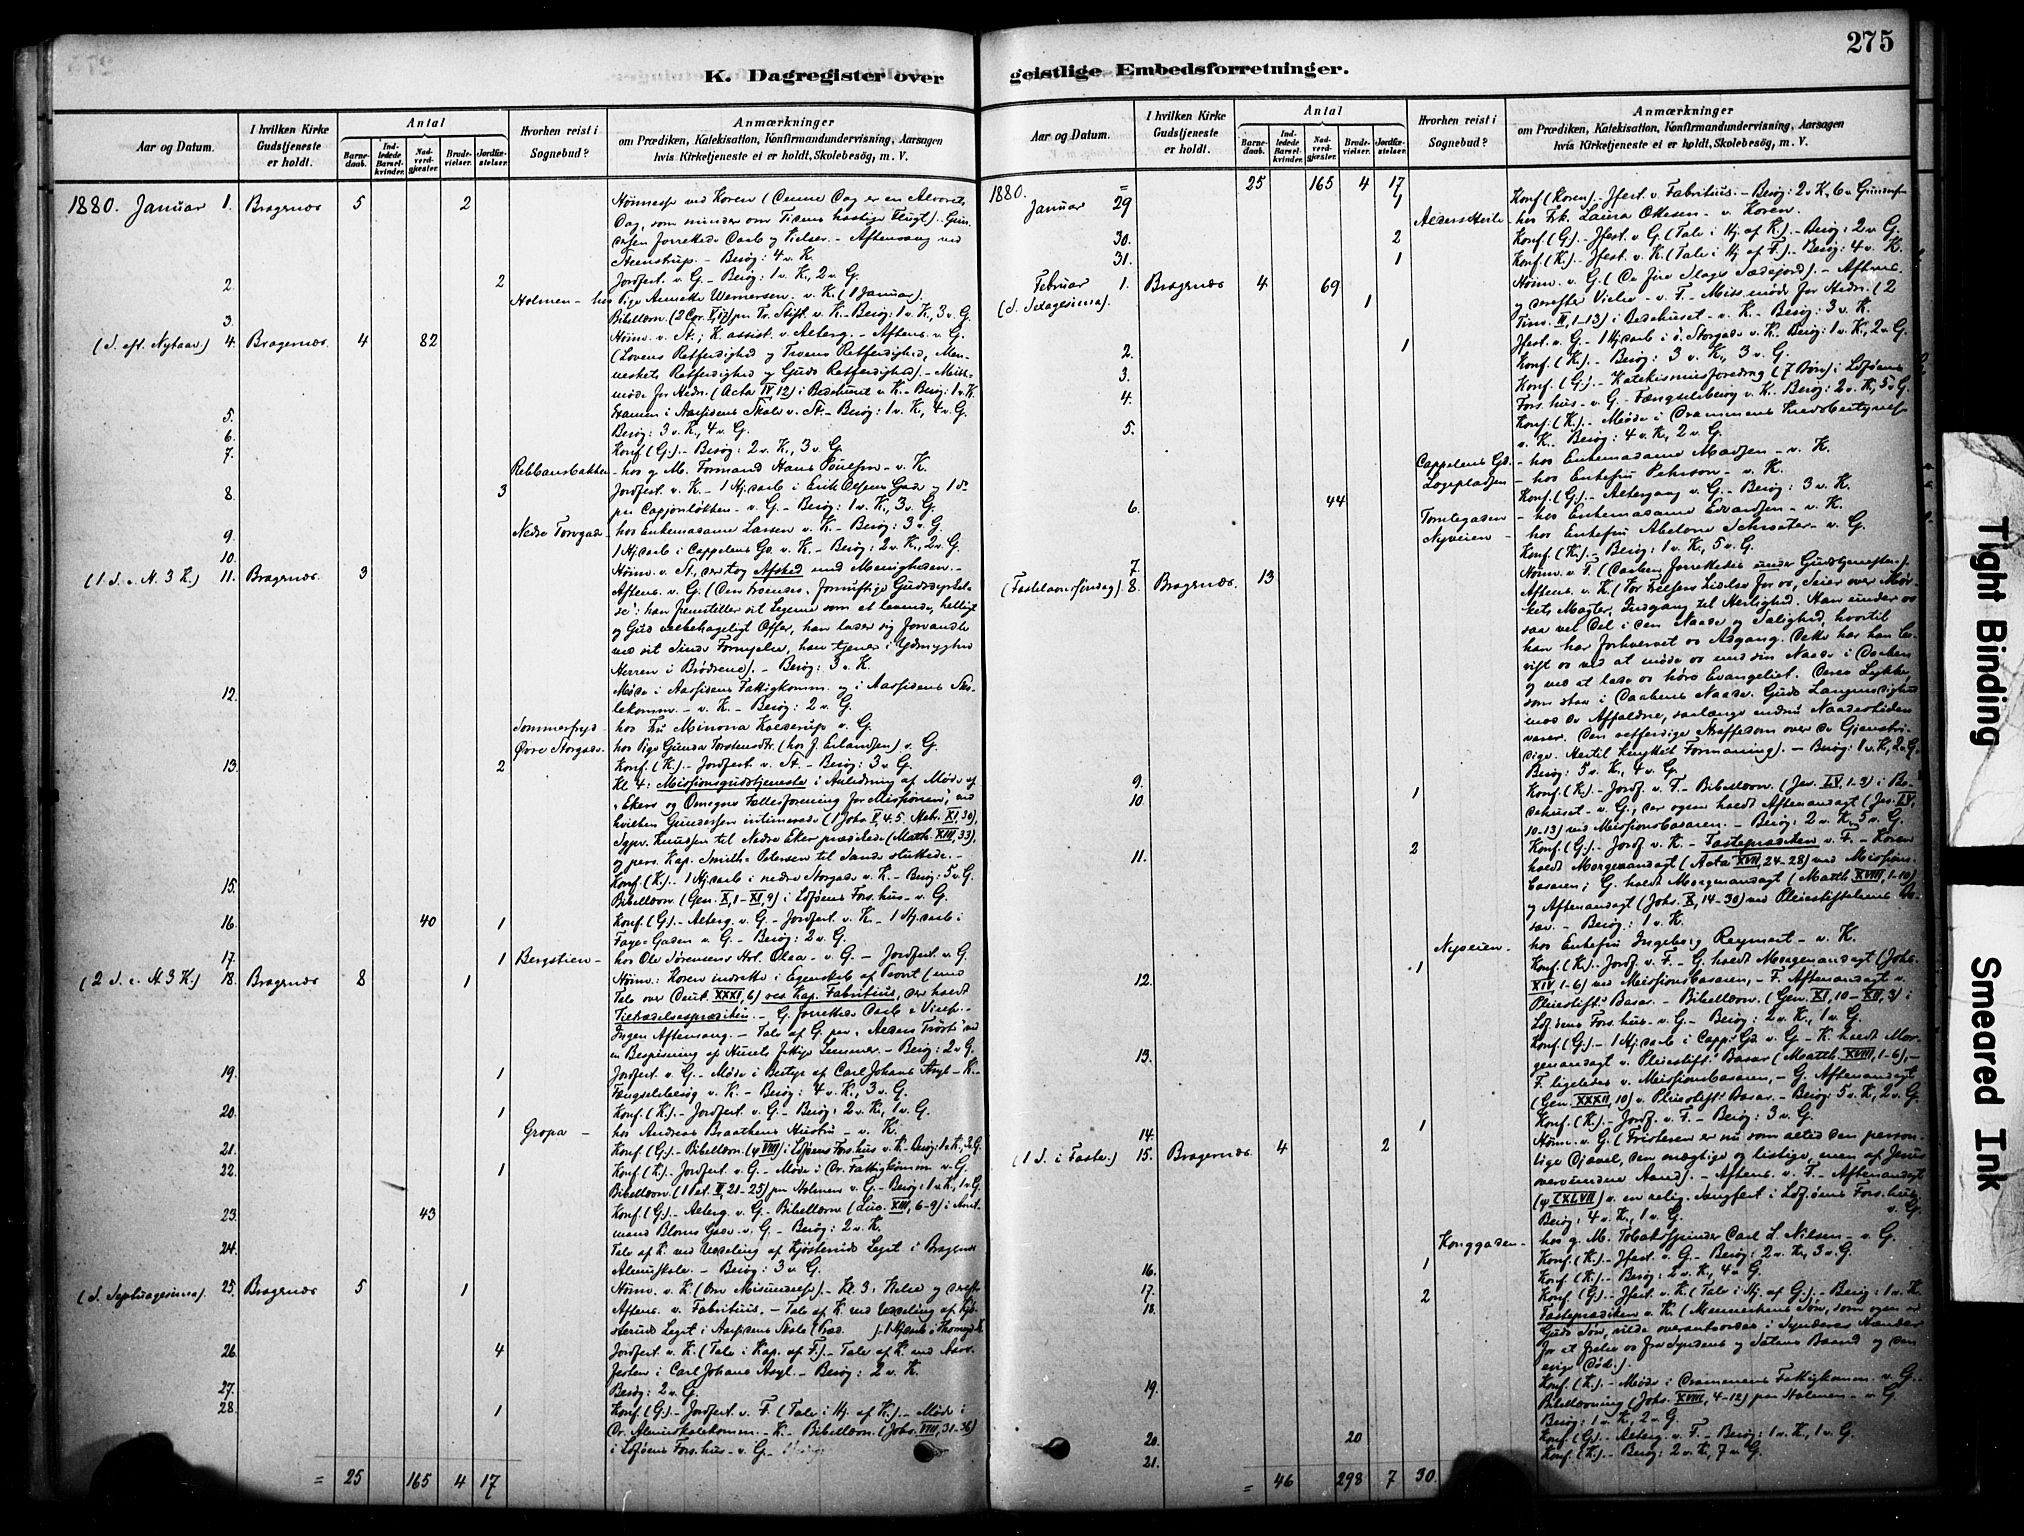 275
K. Dagregister over
geistlige Embedsforretninger.
Aar og Datum.
I hvilken Kirke Gudstjeneste er holdt.
Antal
Barnedaab.
Indledede Barselkvinder.
Nadverdgjæster.
Brudevielser.
Jordfæstelser.
Hvorhen reist i Sognebud?
Anmærkninger
om Prædiken, Katekisation, Konfirmandundervisning, Aarsagen
hvis Kirketjeneste ei er holdt, Skolebesög, m. V.
1880. Januar 1. Bragernæs 5 2 Høimesse ved Koren (Denne Dag er en Alvors
Dag, som minder om Tidens hastige Flugt). Gun-
dersen forrettede Daab og Vielser. - Aftensang ved
Steenstrup. - Besøg: 4 v. K.
2. 2 Jordfest. v. G. - Besøg: 1 v. K., 2 v. G.
Holmen - hos Pige Annette Wernersen. v. K. (1 Januar).
3. Bibellæsn. (2 Cor. V, 17) v. K. - Besøg: 1 v. K., 3 v. G.
(S. eft. Nytaar) 4. Bragernæs. 4 82 Høim. v. St., K. assist. v. Alterg. - Aftens. v. G.
(Lovens Retfærdighed og Troens Retfærdighed, Men-
neskets Retfærdighed og Guds Retfærdighed). - Miss.
møde for Hedn. (Acta IV 12) i Bedehuset v. K. - Besøg: 1 v. K.
5. Examen i Aassidens Skole v. St. - Besøg: 1 v. K., 4 v. G.
6. Besøg: 3 v. K., 4 v. G.
7. Konf. (G.) - Besøg: 2 v. K., 3 v. G.
Rebbansbakken - hos g. M. Formand Hans Poulsen - v. K.
8. 3 Jordfest. v. K. - 1 Hj.daab i Erik Olsens Gaard og 1 do
v. G. - Besøg: 1 v. K., 3 v. G.
Nedre Torvgade - hos Enkemadame Larsen v. K. - Besøg: 3 v. G.
9. 1 Hj.daab i Cappelens Gd. v. K. - Besøg: 2 v. K., 2 v. G.
10.
(1 S. e. H. 3 K.) 11. Bragernæs. 3 Høim. v. St., der tog Afsked med Menigheden. -
Aftens. v. G. (Den troendes "fornuftige Gudsdyrkel-
se": han fremstiller sit Legeme som et levende, helligt
og Gud velbehageligt Offer, han lader sig forvandle
ved sit Sinds Fornyelse, han tjener i Ydmyghed
Herren i Brødrene). - Besøg: 3 v. K.
12. Møde i Aassidens Fattigkomm. og i Aassidens Sko-
lekomm. - v. K. - Besøg: 2 v. G.
Sommerfryd - hos Fru Minona Kolderup v. G.
Øvre Storgade - hos Pige Gunda Torstensdtr. (hos J. Erlandsen) v. G.
13. 2 Konf. (K.) - Jordfest. v. St. - Besøg: 3 v. G.
Kl. 4: Missionsgudstjeneste i Anledning af Møde af
"Ekers og Omegns Fællesforening for Missionen", ved
hvilken Gundersen intimerede (1 Joh. V, 4.5. Hebr. XI, 30),
Sgpr. Knudsen til Nedre Eker prædikede (Matth. XIII, 33),
og pers. Kap. Smith-Petersen til Sande sluttede. -
15. Konf. (K.) - 1 Hj.daab i nedre Storgade v. K. - Besøg: 5 v. G.
Bibellæsn. (Gen. X, 1 - XI, 9) i Løkkens Fors.hus - v. G.
16. 40 1 Konf. (G.) - Alterg. v. G. - Jordfest. v. K. - 1 Hj.daab i
Fayes Gaden v. G. - Besøg: 2 v. G.
17. 1 Bergstien - v. G. - Jordfest. v. G.
(2 S. e. H 3 K.) 18. Bragernæs 8 1 Høim. Koren indsatte i Egenskab af Provst (med
Tale over Deut. XXXI, 6) res. Kap. Fabritius, der holdt
Tiltrædelsesprædiken. - G. forrettede Daab & Vielse.
Ingen Aftensang. - Tale af G. paa "Alders Trøst" ved
en Bespisning af Husets fattige Lemmer. - Besøg: 2 v. G.
19. 1 Jordfest. v. G. - Møde i Bestyr. af Carl Johans Asyl - K. -
Fængselsbesøg v. K. - Besøg: 4 v. K., 3 v. G.
20. 1 Konf. (K.) - Jordfest. v. G. - Besøg: 2 v. K., 1 v. G.
Gropa - hos Andreas Braathens Hustru - v. K.
21. Konf. (G.) - Bibellæsn. (ψ VIII) i Løkkens Fors.hus v. K. - Besøg: 1 v. K., 3 v. G.
22. 1 Konf. (K.) - Jordfest. v. G. - Møde i Dr. Fattigkomm. v. G.
Bibellæsn. (1 Pet. II, 21-25) paa Holmen v. G. - Besøg: 1 v. K., 1 v. G.
23. 43 Konf. (G.) - Alterg. v. G. - Bibellæsn. (Luc. XIII, 6-9) i Amt-
mand Bloms Gade - v. G. - Besøg: 2 v. K.
24. Tale af K. ved Uddeling af Kjøsteruds Legat i Bragernæs
Almueskole. - Besøg: 3 v. G.
(S. Septuagesima). 25. Bragernæs 5 1 Høim. v. K. (Om Misundelse). - Kl. 3: Vielse og derefter
Aftens. v. Fabritius. - Tale af K. ved Uddeling af Kjø-
steruds Legat i Aassidens Skole
26. 4 Jordfest. v. K. (Tale i Kap. af F.) - Tale af K. ved Aars-
festen i Carl Johans Asyl. - Besøg: 2 v. K.
27. Besøg: 2 v. G.
28. 1 Konf. (G.) - Jordfest. v. F. (Tale i Hj. af K.). - Møde i
Dr. Almueskolekomm. - K. - Bibellæsn. (Joh. VIII, 31-36)
i Løkkens Fors.hus - v. G.
= 25 165 4 17
Aar og Datum.
I hvilken Kirke Gudstjeneste er holdt.
Antal
Barnedaab.
Indledede Barselkvinder.
Nadverdgjæster.
Brudevielser.
Jordfæstelser.
Hvorhen reist i Sognebud?
Anmærkninger
om Prædiken, Katekisation, Konfirmandundervisning, Aarsagen
hvis Kirketjeneste ei er holdt, Skolebesög, m. V.
1880. = 25 165 4 17
Januar 29 1 Konf. (Koren) - Jfest. v. Fabritius. - Besøg: 2 v. K., 6 v. Gundersen
Alders Hvile - hos Frk. Laura Ottesen - v. Koren.
30. 2 Konf. (G.) - Jfest. v. G. (Tale i Hj. af K.) - Besøg: 2 v. G.
31. 1 Konf. (K.) - Jfest. v. K. (Tale i Hj. af F.) - Besøg: 4 v. K.
Februar 1. Bragernæs 4 69 1 Høim. v. G. (De fire Slags Sædejord). - Aftens.
(S. Sexagesima). og derefter Vielse - v. F. - Miss.møde for Hedn. (2
Tim. II, 1-13) i Bedehuset - v. K. - Besøg: 3 v. K.
2. 1 Jfest. v. G. - 1 Hj.daab i ö. Storgade v. K. Besøg: 1 v. K., 2 v. G.
3. Konf. (K.) - Besøg: 3 v. K., 3 v. G.
4. Konf. (G.) - Katekismusforedrag (7 Bøn) i Løkkens
Fors.hus - v. G. - Fængselsbesøg v. K. - Besøg: 2 v. K., 5 v. G.
5. Konf. (K.) - Møde i Drammens
v. K. Besøg: 4 v. K., 2 v. G.
Cappelens Gd. - hos Enkemadame Madsen - v. K.
Logepladsen - hos Enkefru Pehrson - v. K.
6. 44 Konf. (G.) - Altergang v. G. - Besøg: 3 v. K.
Tomtegaden - hos Enkemadame Edvardsen - v. K.
Nyveien - hos Enkefru Abelone Schrøeter - v. G.
7. Konf. (K.) - Besøg: 1 v. K., 5 v. G.
(Fastelavnssøndag). 8. Bragernæs. 13 Høim. v. F. (Daaben forrettedes under Gudstjenesten).
Aftens. v. K. (For Frelsens Lidelse for os, Seier over Mør-
kets Magter, Indgang til Herlighed. Han under os
saa vel Del i den Naade og Salighed, hvortil
han har forhvervet os Adgang. Dette har han be-
vist os ved at møde os med sin Naade i Daaben
og ved at lade os høre Evangeliet. Deres Lykke,
som staa i Daabens Naade. Guds Langmodighed
mod de Affaldne, saalænge endnu Naadestiden
varer. Den retfærdige Straffedom over de Gjenstri-
dige. Hertil knyttet Formaning). - Besøg: 1 v. K., 2 v. G.
9. Besøg: 5 v. K., 4 v. G.
10. 1 Konf. (K.) - Jordf. v. F. - Bibellæsn. (Jes. LV, 1-9) i Be-
dehuset - v. G., der ogsaa holdt Aftenandagt (Jes. LV,
10-13) ved Missionsbasaren. - Besøg: 2 v. K., 5 v. G.
11. 2 Konf. (G.) - Jordf. v. K. - Fasteprædiken v. F. - Koren
holdt Morgenandagt (Acta XVII, 24-28) ved Missions-
basaren; G. holdt Morgenandagt (Matth. XVIII, 1-10)
og Aftenandagt (Joh. X, 14-30) ved Pleiestiftelsens Ba-
sar. - Besøg: 1 v. K.
Nyveien - hos Enkefru Ingeborg Reymert - v. K.
12. 1 Konf. (K.) - Jordf. v. F. - G. holdt Morgenandagt (Joh.
XIV, 1-6) ved Missionsbasaren, - F. Aftenandagt v.
Pleiestift.s Basar. - Bibellæsn. (Gen. XI, 10 - XII, 3) i
Løkkens Fors.hus - v. G. - Besøg: 2 v. K., 1 v. G.
13. Konf. (G.) - 1 Hj.daab i Capp.s Gd. v. G. - K. holdt Mor-
genandagt v. Pleiestift.s Basar (Matth. XVIII, 1-6), -
F. ligeledes v. Missionsbasaren, - G. Aftenandagt
(Gen. XXXII, 10) v. Pleiestift.s Basar. - Besøg: 5 v. K., 2 v. G.
14. 1 Konf. (K.) - Jordf. v. F. - Besøg: 3 v. G.
(1 S. i Faste.) 15. Bragernæs 4 2 Høim. v. G. (Fristeren er nu som altid den person-
lige Djævel, den mægtige og listige, men af Jesus
overvundne Aand). - Aftens. v. F. - Aftenandagt
(ψ CXLVII) v. en relig. Sangfest i Løkkens Fors.hus
v. G.
Besøg: 4 v. K., 1 v. G.
Konggaden - hos g. M. Tobakspinder Carl L. Nilsen - v. G.
16. 1 Konf. (K.) - Jfest. v. G. - Besøg: 2 v. K., 3 v. G.
17. Konf. (K.) - Besøg: 2 v. K., 4 v. G.
18. 2 Konf. (G.) - Jfest. v. K. (Tale i Hj. af G.) - Besøg: 1 v. K.
Fasteprædiken v. K. (Menneskens Søn, som ogsaa er
Guds Søn, vilde overantvordes i Synderes Hænder
for at frelse os fra Syndens og Satans Baand og den
evige Død.).
19. Konf. (K.) - Møde i Drammens Fattigkomm. v. G. -
Bibellæsning (Joh. XVIII, 4-12) paa Holmen - v. G.
Besøg: 1 v. K., 2 v. G.
20. 20 Konf. (G.) - Alterg. v. F. - Besøg: 1 v. K., 1 v. G.
21. Konf. (K.) - Besøg: 2 v. K., 7 v. G.
= 46 298 7 30
Tight Binding
Smeared Ink